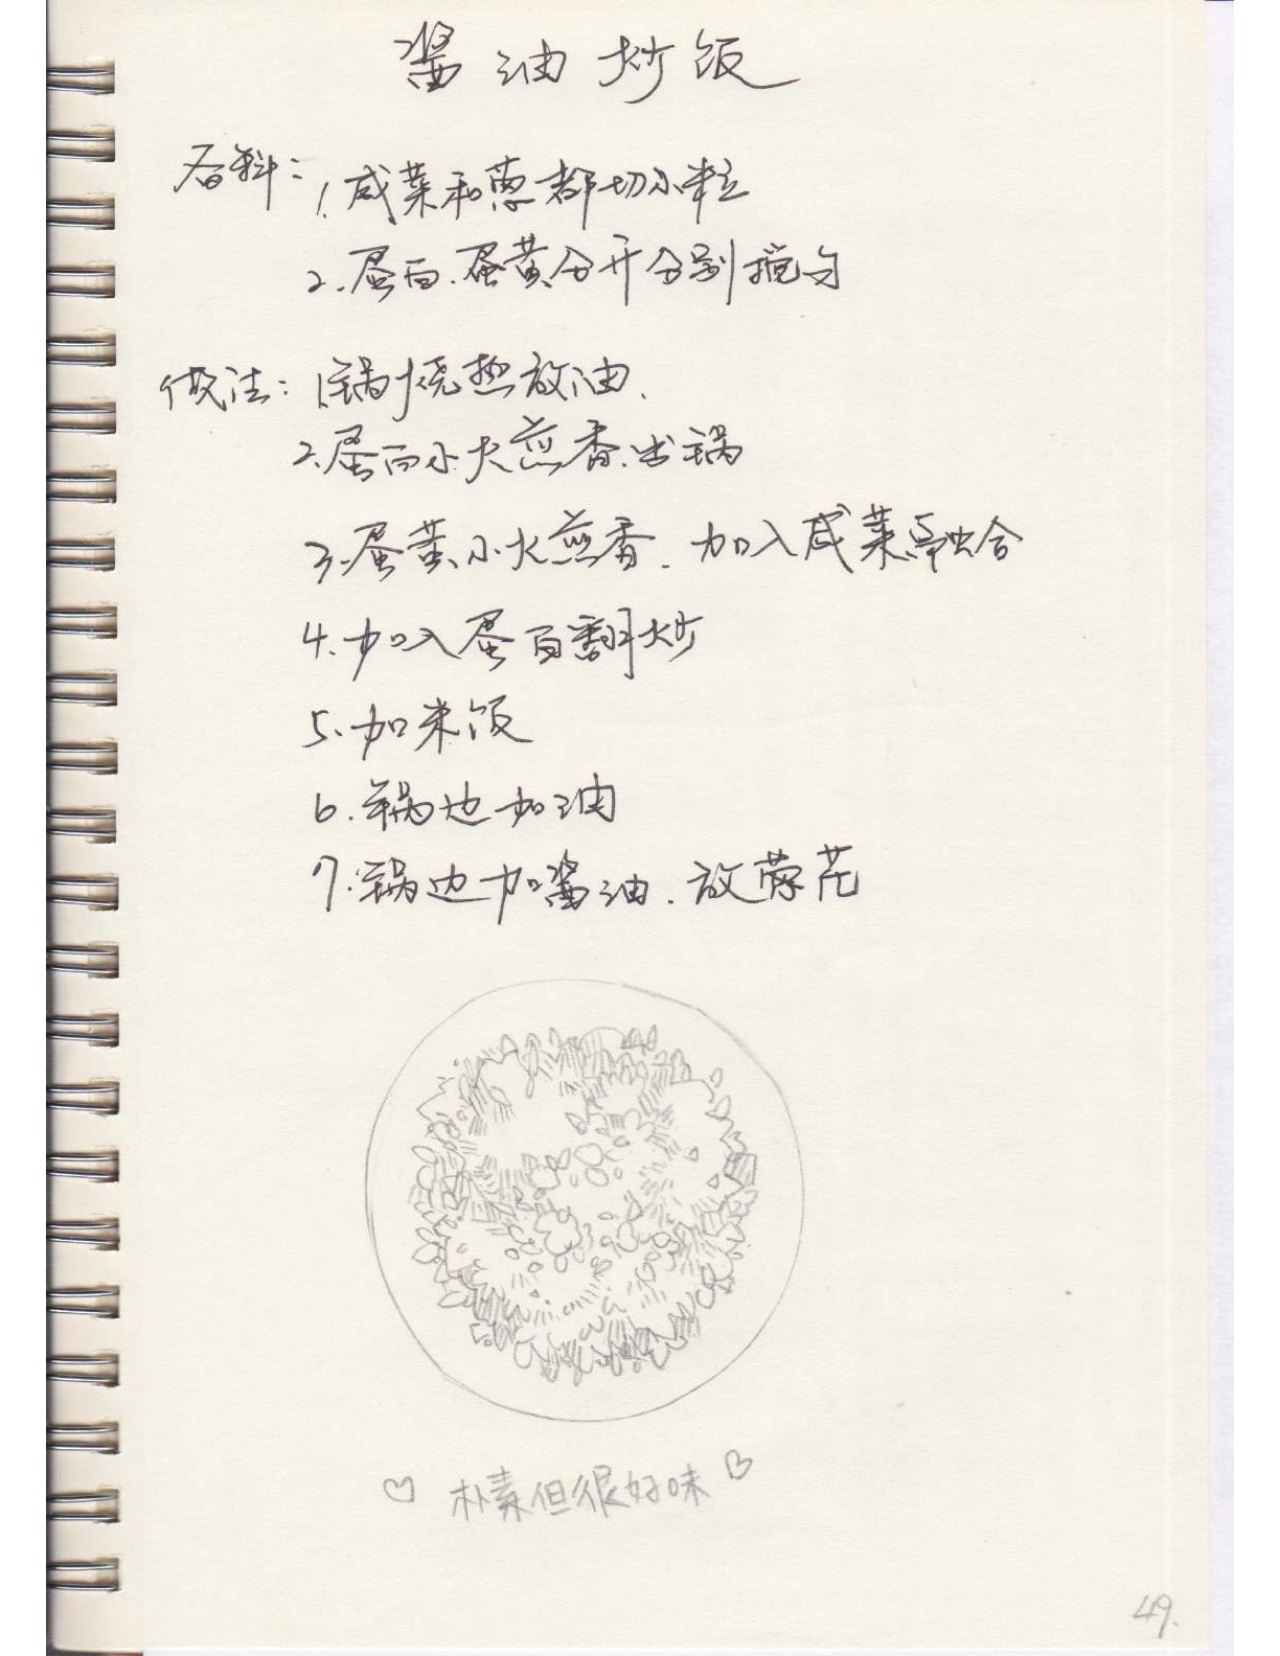 酱油炒饭
备料：1.咸菜和葱都切小粒
2.蛋白.蛋黄分开分别搅匀
做法：1.锅烧热放油.
2.蛋白小火煎香.出锅
3.蛋黄小火煎香.加入咸菜融合
4.加入蛋白翻炒
5.加米饭
6.锅边加油
7.锅边加酱油.放葱花
♡ 朴素但很好味 ♡
49.